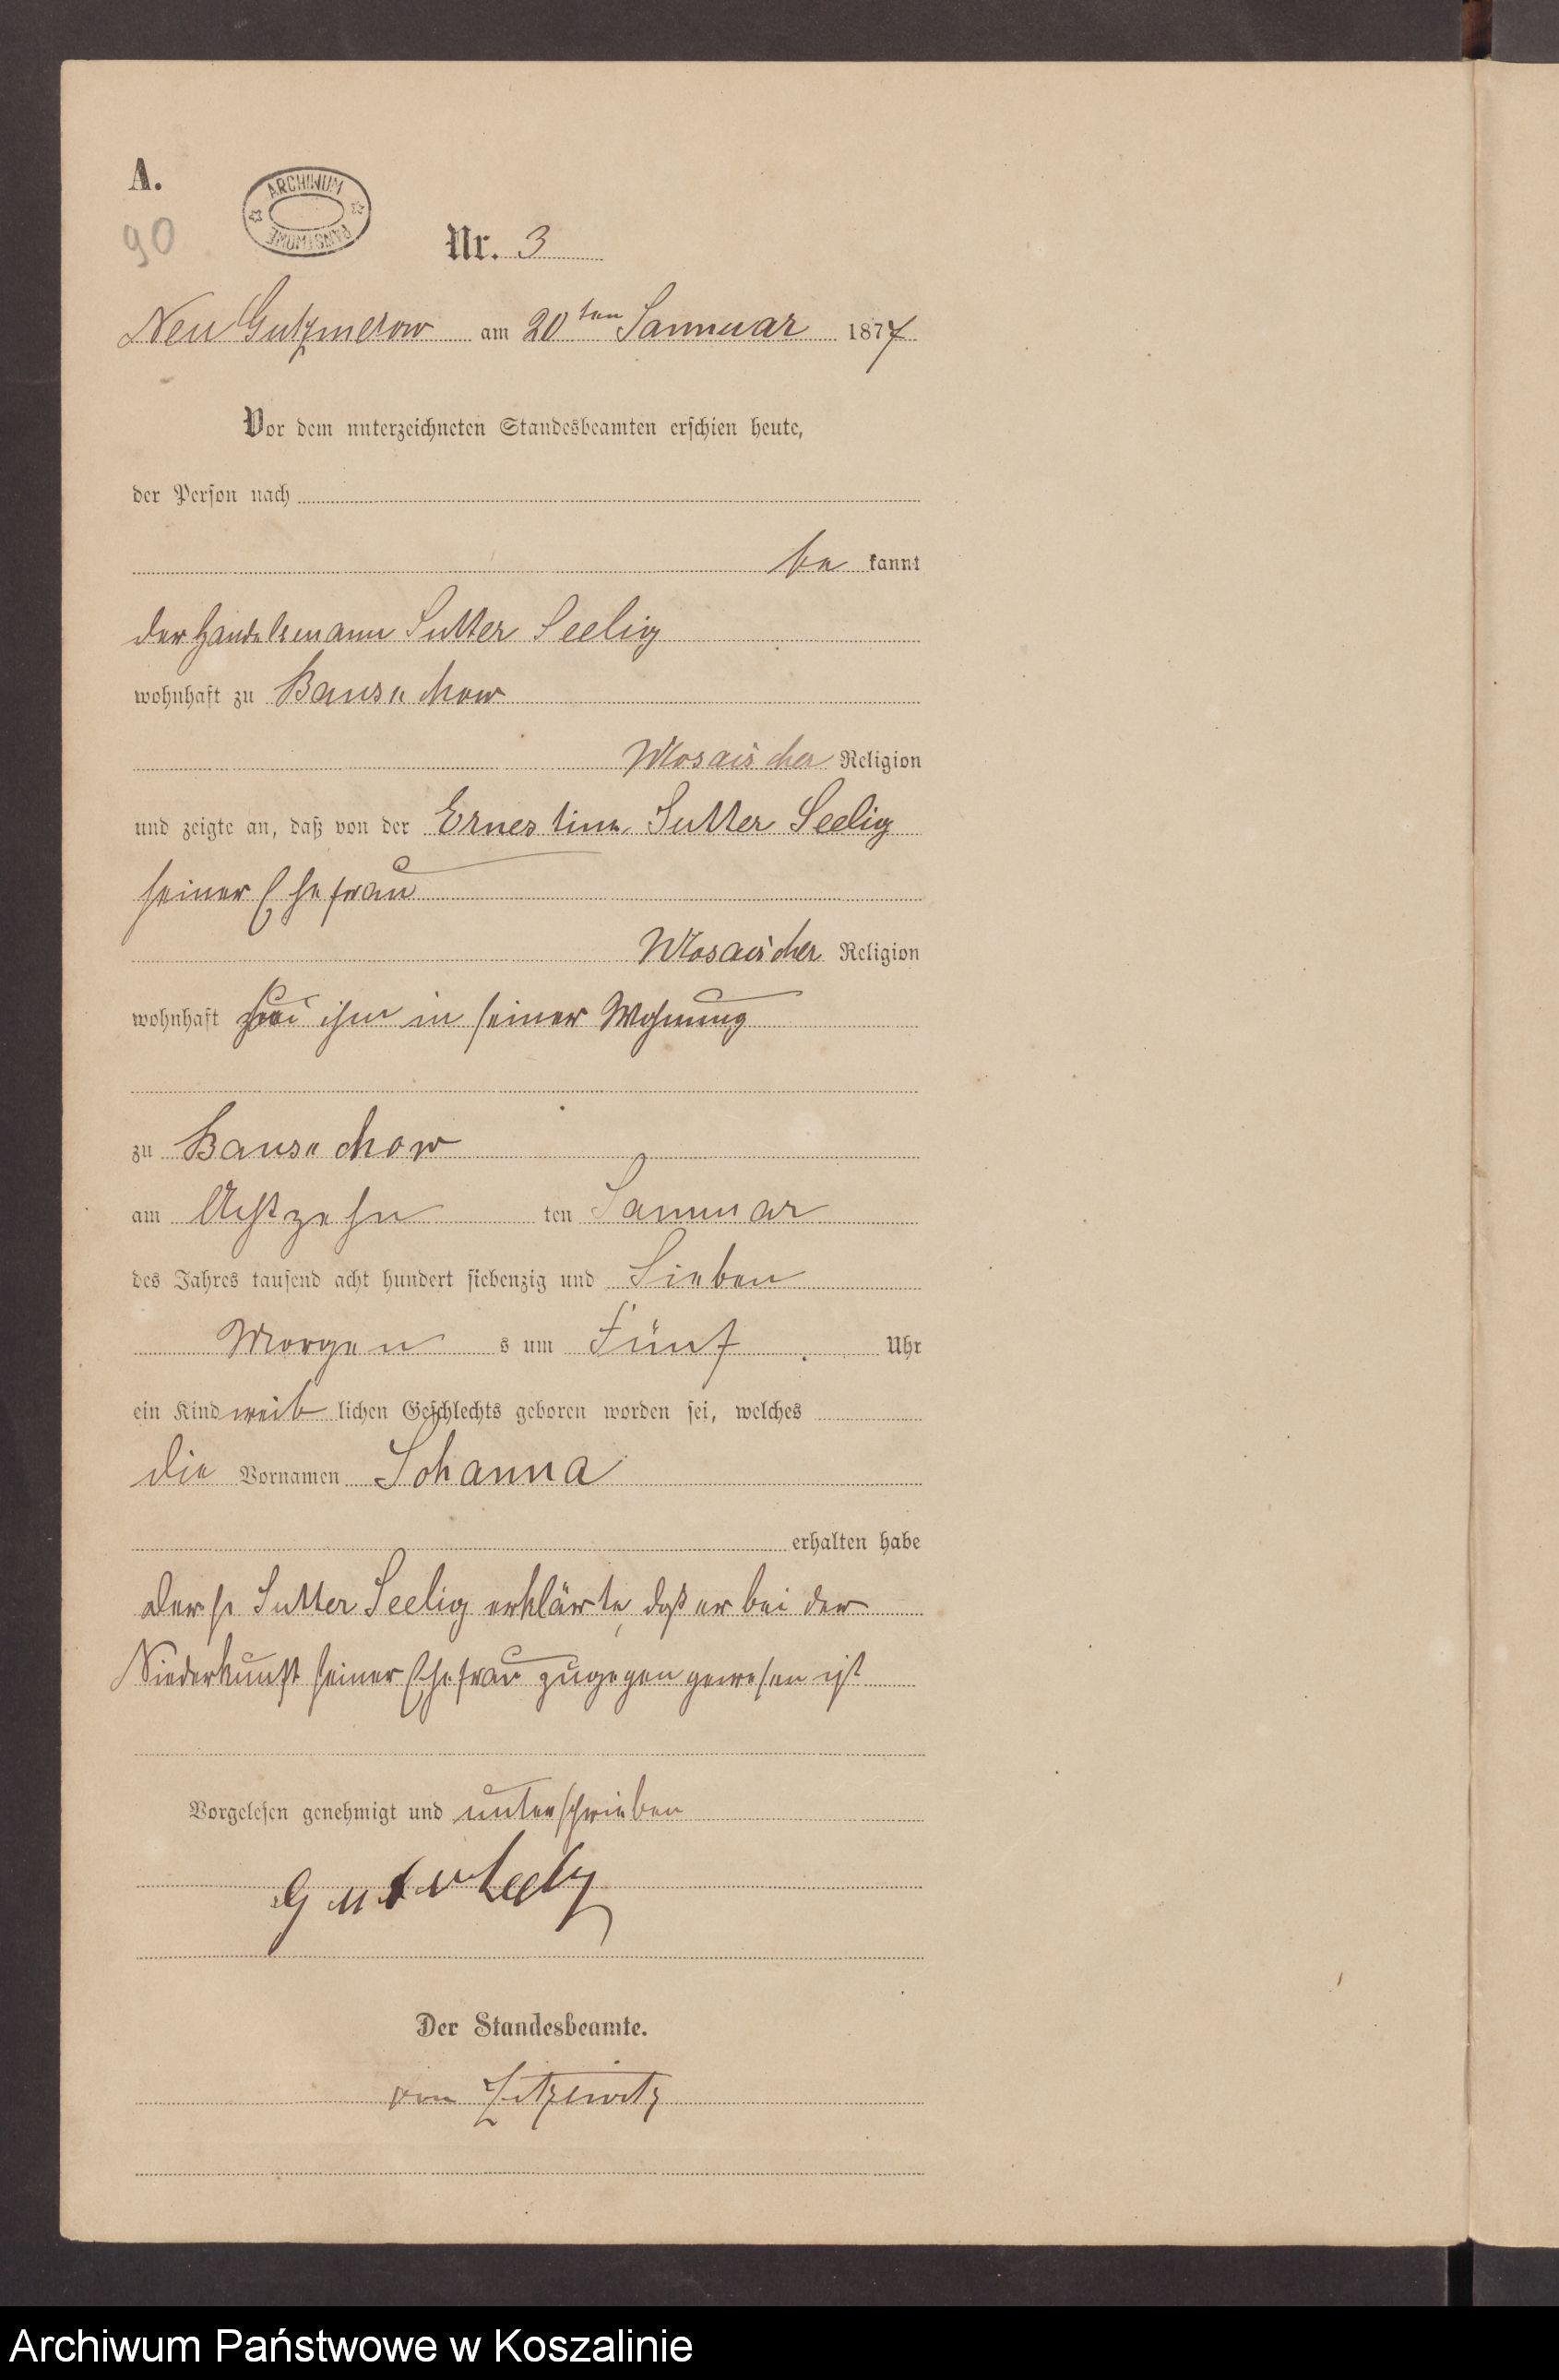 A.
90
ARCHIWUM PAŃSTWOWE
Nr. 3
Neu Gutzmerow am 20ten Januuar 1877
Vor dem unterzeichneten Standesbeamten erschien heute,
der Person nach
be kannt
der Handelsmann Sutter Seelig
wohnhaft zu Bansechow
Mosaischer Religion
und zeigte an, daß von der Ernestine Sutter Seelig
seiner Ehefrau
Mosaischer Religion
wohnhaft bei ihm in seiner Wohnung
zu Bansechow
am Achtzehn ten Januuar
des Jahres tausend acht hundert siebenzig und Sieben
Morgen s um Fünf Uhr
ein Kind weib lichen Geschlechts geboren worden sei, welches
die Vornamen Johanna
erhalten habe
Der Sutter Seelig erklärte, daß er bei der
Niederkunft seiner Ehefrau zugegen gewesen ist
Vorgelesen genehmigt und unterschrieben
Der Standesbeamte.
von Zitzewitz
Archiwum Państwowe w Koszalinie